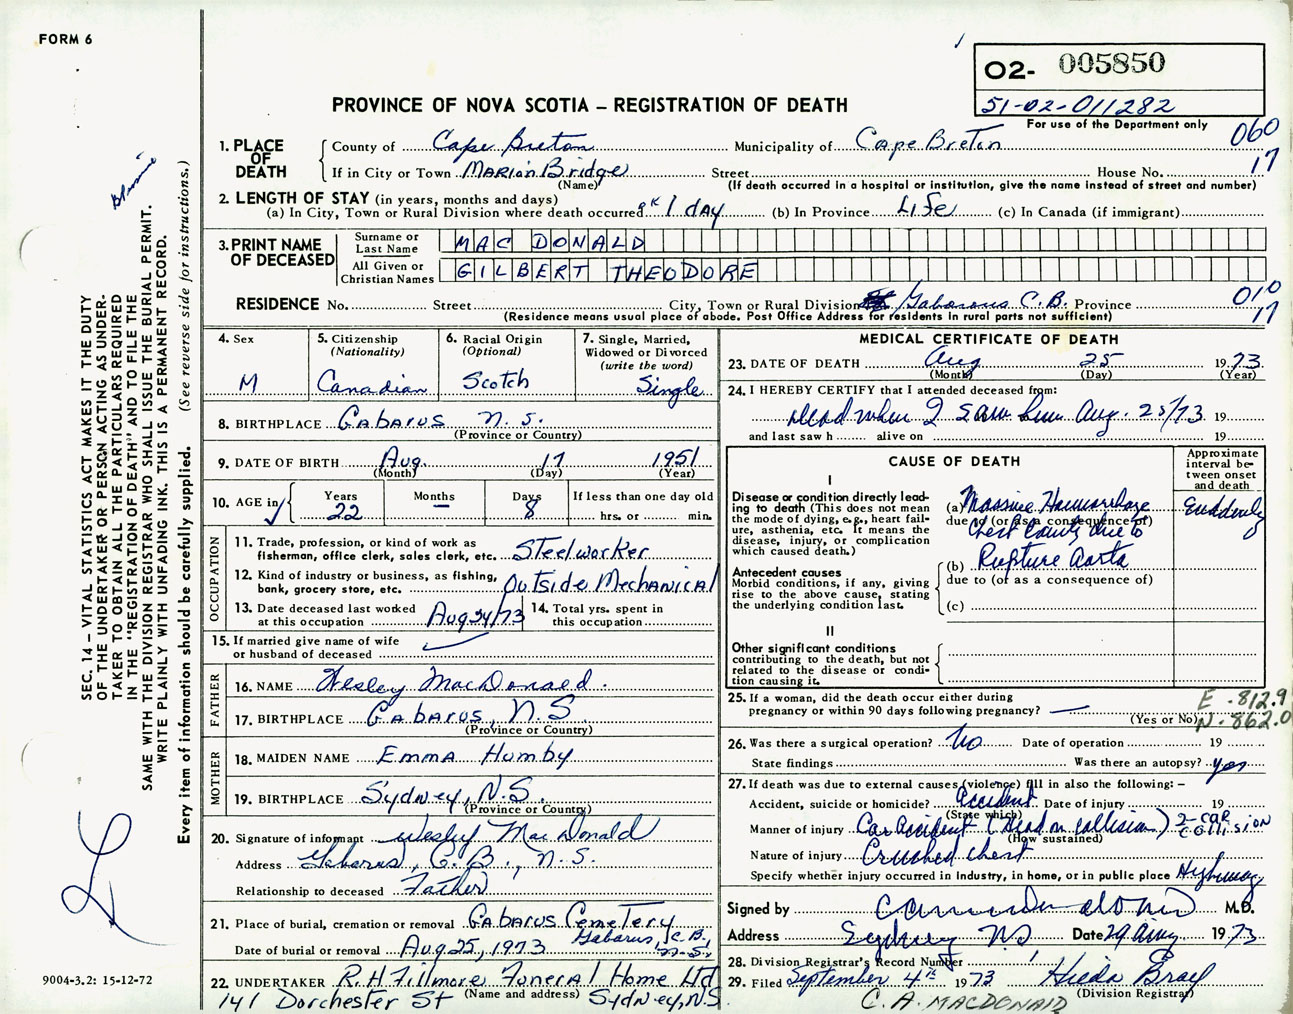 FORM 6
O2- 005850
51-02-011282
For use of the Department only
PROVINCE OF NOVA SCOTIA – REGISTRATION OF DEATH
060
17
1. PLACE OF DEATH
County of Cape Breton Municipality of Cape Breton
If in City or Town Marion Bridge Street House No.
(Name) (If death occurred in a hospital or institution, give the name instead of street and number)
2. LENGTH OF STAY (in years, months and days)
(a) In City, Town or Rural Division where death occurred 1 day (b) In Province Life (c) In Canada (if immigrant)
3. PRINT NAME OF DECEASED
Surname or Last Name MAC DONALD
All Given or Christian Names GILBERT THEODORE
RESIDENCE No. Street City, Town or Rural Division Gabarous C.B. Province
010
17
(Residence means usual place of abode. Post Office Address for residents in rural parts not sufficient)
4. Sex
M
5. Citizenship
(Nationality)
Canadian
6. Racial Origin
(Optional)
Scotch
7. Single, Married,
Widowed or Divorced
(write the word)
Single
8. BIRTHPLACE Gabarus N.S.
(Province or Country)
9. DATE OF BIRTH Aug. 17 1951
(Month) (Day) (Year)
10. AGE in
Years Months Days If less than one day old
22 – 8 hrs. or min.
OCCUPATION
11. Trade, profession, or kind of work as
fisherman, office clerk, sales clerk, etc. Steelworker
12. Kind of industry or business, as fishing,
bank, grocery store, etc. Outside Mechanical
13. Date deceased last worked
at this occupation Aug 24/73
14. Total yrs. spent in
this occupation
15. If married give name of wife
or husband of deceased
FATHER
16. NAME Wesley MacDonald.
17. BIRTHPLACE Gabarus, N.S.
(Province or Country)
MOTHER
18. MAIDEN NAME Emma Humby
19. BIRTHPLACE Sydney, N.S.
(Province or Country)
20. Signature of informant Wesley MacDonald
Address Gabarus, C.B., N.S.
Relationship to deceased Father
21. Place of burial, cremation or removal Gabarus Cemetery
Gabarus, C.B., N.S.
Date of burial or removal Aug 25, 1973
22. UNDERTAKER R.H. Fillmore Funeral Home Ltd
(Name and address)
141 Dorchester St Sydney, N.S.
MEDICAL CERTIFICATE OF DEATH
23. DATE OF DEATH Aug 25 1973
(Month) (Day) (Year)
24. I HEREBY CERTIFY that I attended deceased from:
Dead when I saw him Aug. 25/73 19
and last saw h alive on 19
CAUSE OF DEATH
Approximate interval between onset and death
I
Disease or condition directly leading to death (This does not mean the mode of dying, e.g., heart failure, asthenia, etc. It means the disease, injury, or complication which caused death.)
(a) Massive Haemorrhage Suddenly
due to (or as a consequence of)
Chest Cavity due to
Rupture Aorta
Antecedent causes
Morbid conditions, if any, giving rise to the above cause, stating the underlying condition last.
(b)
due to (or as a consequence of)
(c)
II
Other significant conditions
contributing to the death, but not related to the disease or condition causing it.
25. If a woman, did the death occur either during
pregnancy or within 90 days following pregnancy? —
(Yes or No)
E .812.9
N.862.0
26. Was there a surgical operation? No Date of operation 19
State findings Was there an autopsy? yes
27. If death was due to external causes (violence) fill in also the following: –
Accident, suicide or homicide? Accident Date of injury 19
(State which)
Manner of injury Car Accident (Head on collision) 2-CAR COLLISION
(How sustained)
Nature of injury Crushed chest
Specify whether injury occurred in industry, in home, or in public place Highway
Signed by M.D.
Address Sydney NS Date 29 Aug 1973
28. Division Registrar's Record Number
29. Filed September 4th 1973 Hilda Bray
(Division Registrar)
C. A. MACDONALD
SEC. 14 – VITAL STATISTICS ACT MAKES IT THE DUTY
OF THE UNDERTAKER OR PERSON ACTING AS UNDERTAKER
TO OBTAIN ALL THE PARTICULARS REQUIRED
IN THE "REGISTRATION OF DEATH" AND TO FILE THE
SAME WITH THE DIVISION REGISTRAR WHO SHALL ISSUE THE BURIAL PERMIT.
WRITE PLAINLY WITH UNFADING INK. THIS IS A PERMANENT RECORD.
Every item of information should be carefully supplied. (See reverse side for instructions.)
9004-3.2: 15-12-72